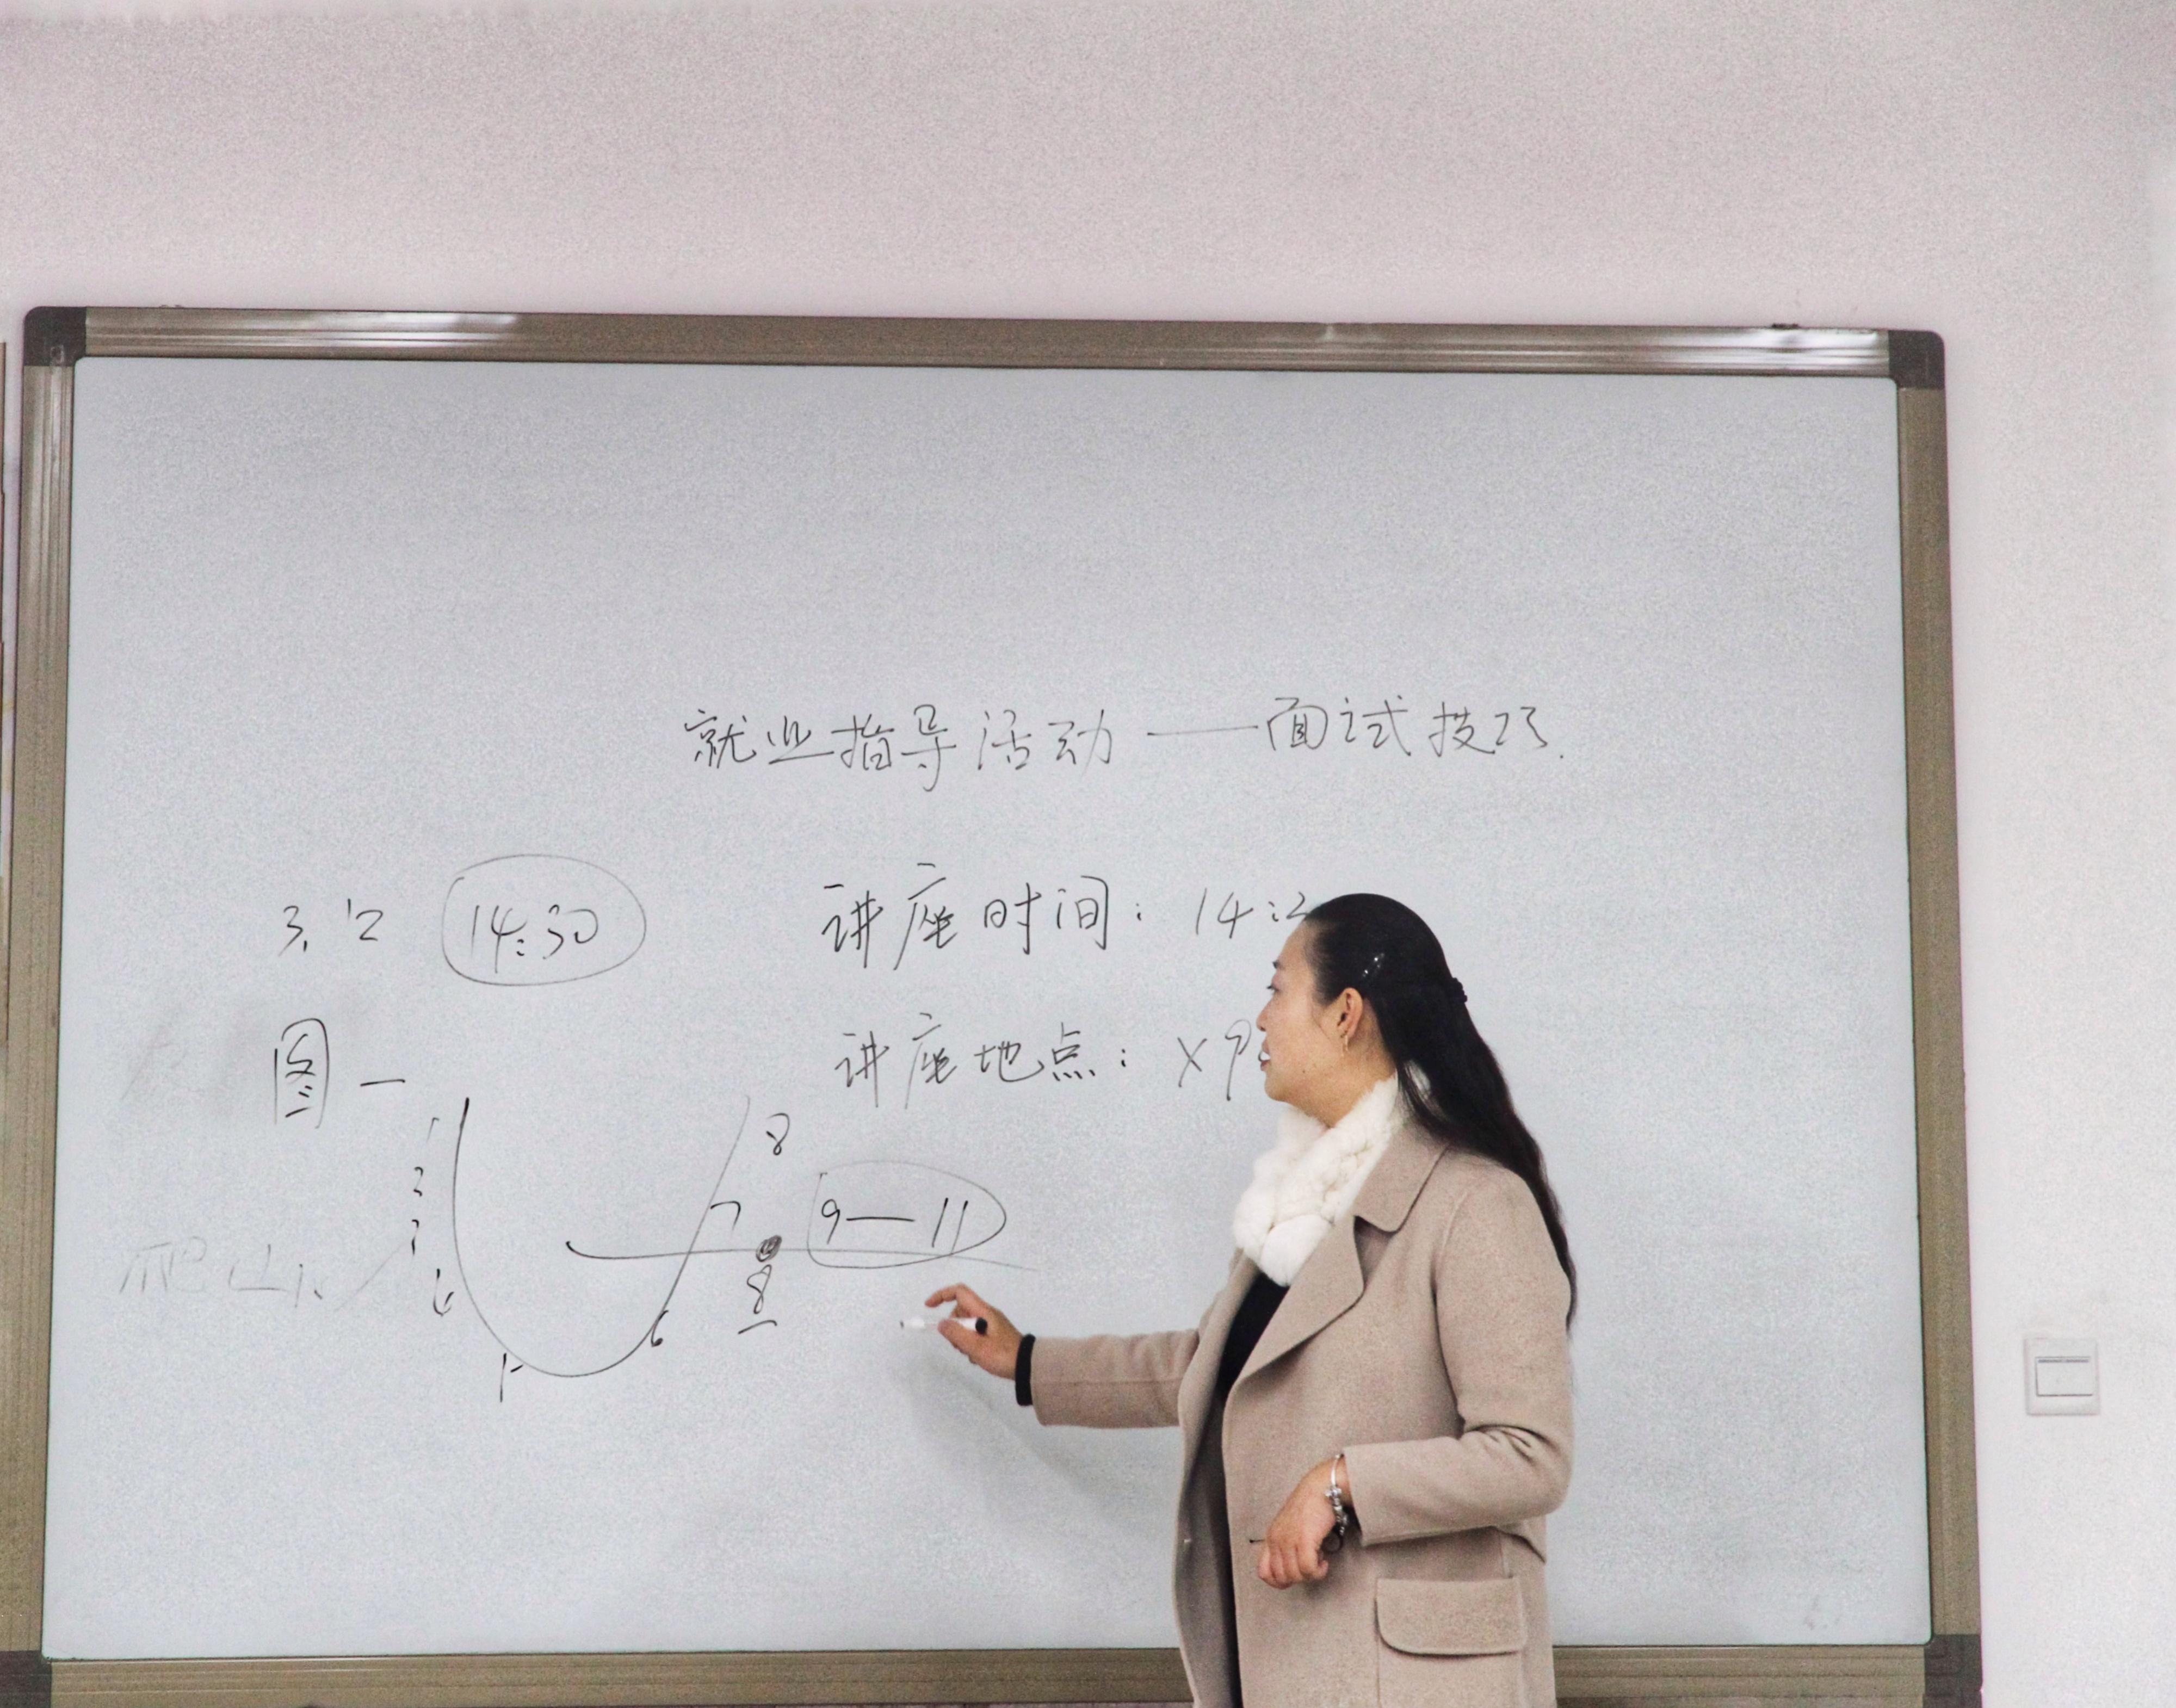 就业指导活动——面试技巧.
3.12 14:30
讲座时间: 14:2
图一
讲座地点: X9
1
8
2
3
7
9—11
爬山
4
8
5
6